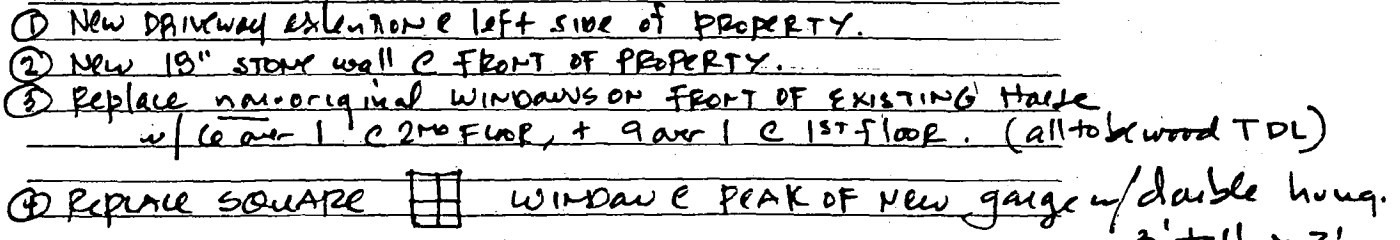 ① New DRIVEWAY extention @ left side of PROPERTY.
② New 18" STONE wall @ FRONT OF PROPERTY.
③ Replace non-original WINDOWS ON FRONT OF EXISTING House
w/ 6 over 1 @ 2ND FLOOR, + 9 over 1 @ 1ST floor. (all to be wood TDL)
④ REPLACE SQUARE WINDOW @ PEAK OF New garge w/ double hung.